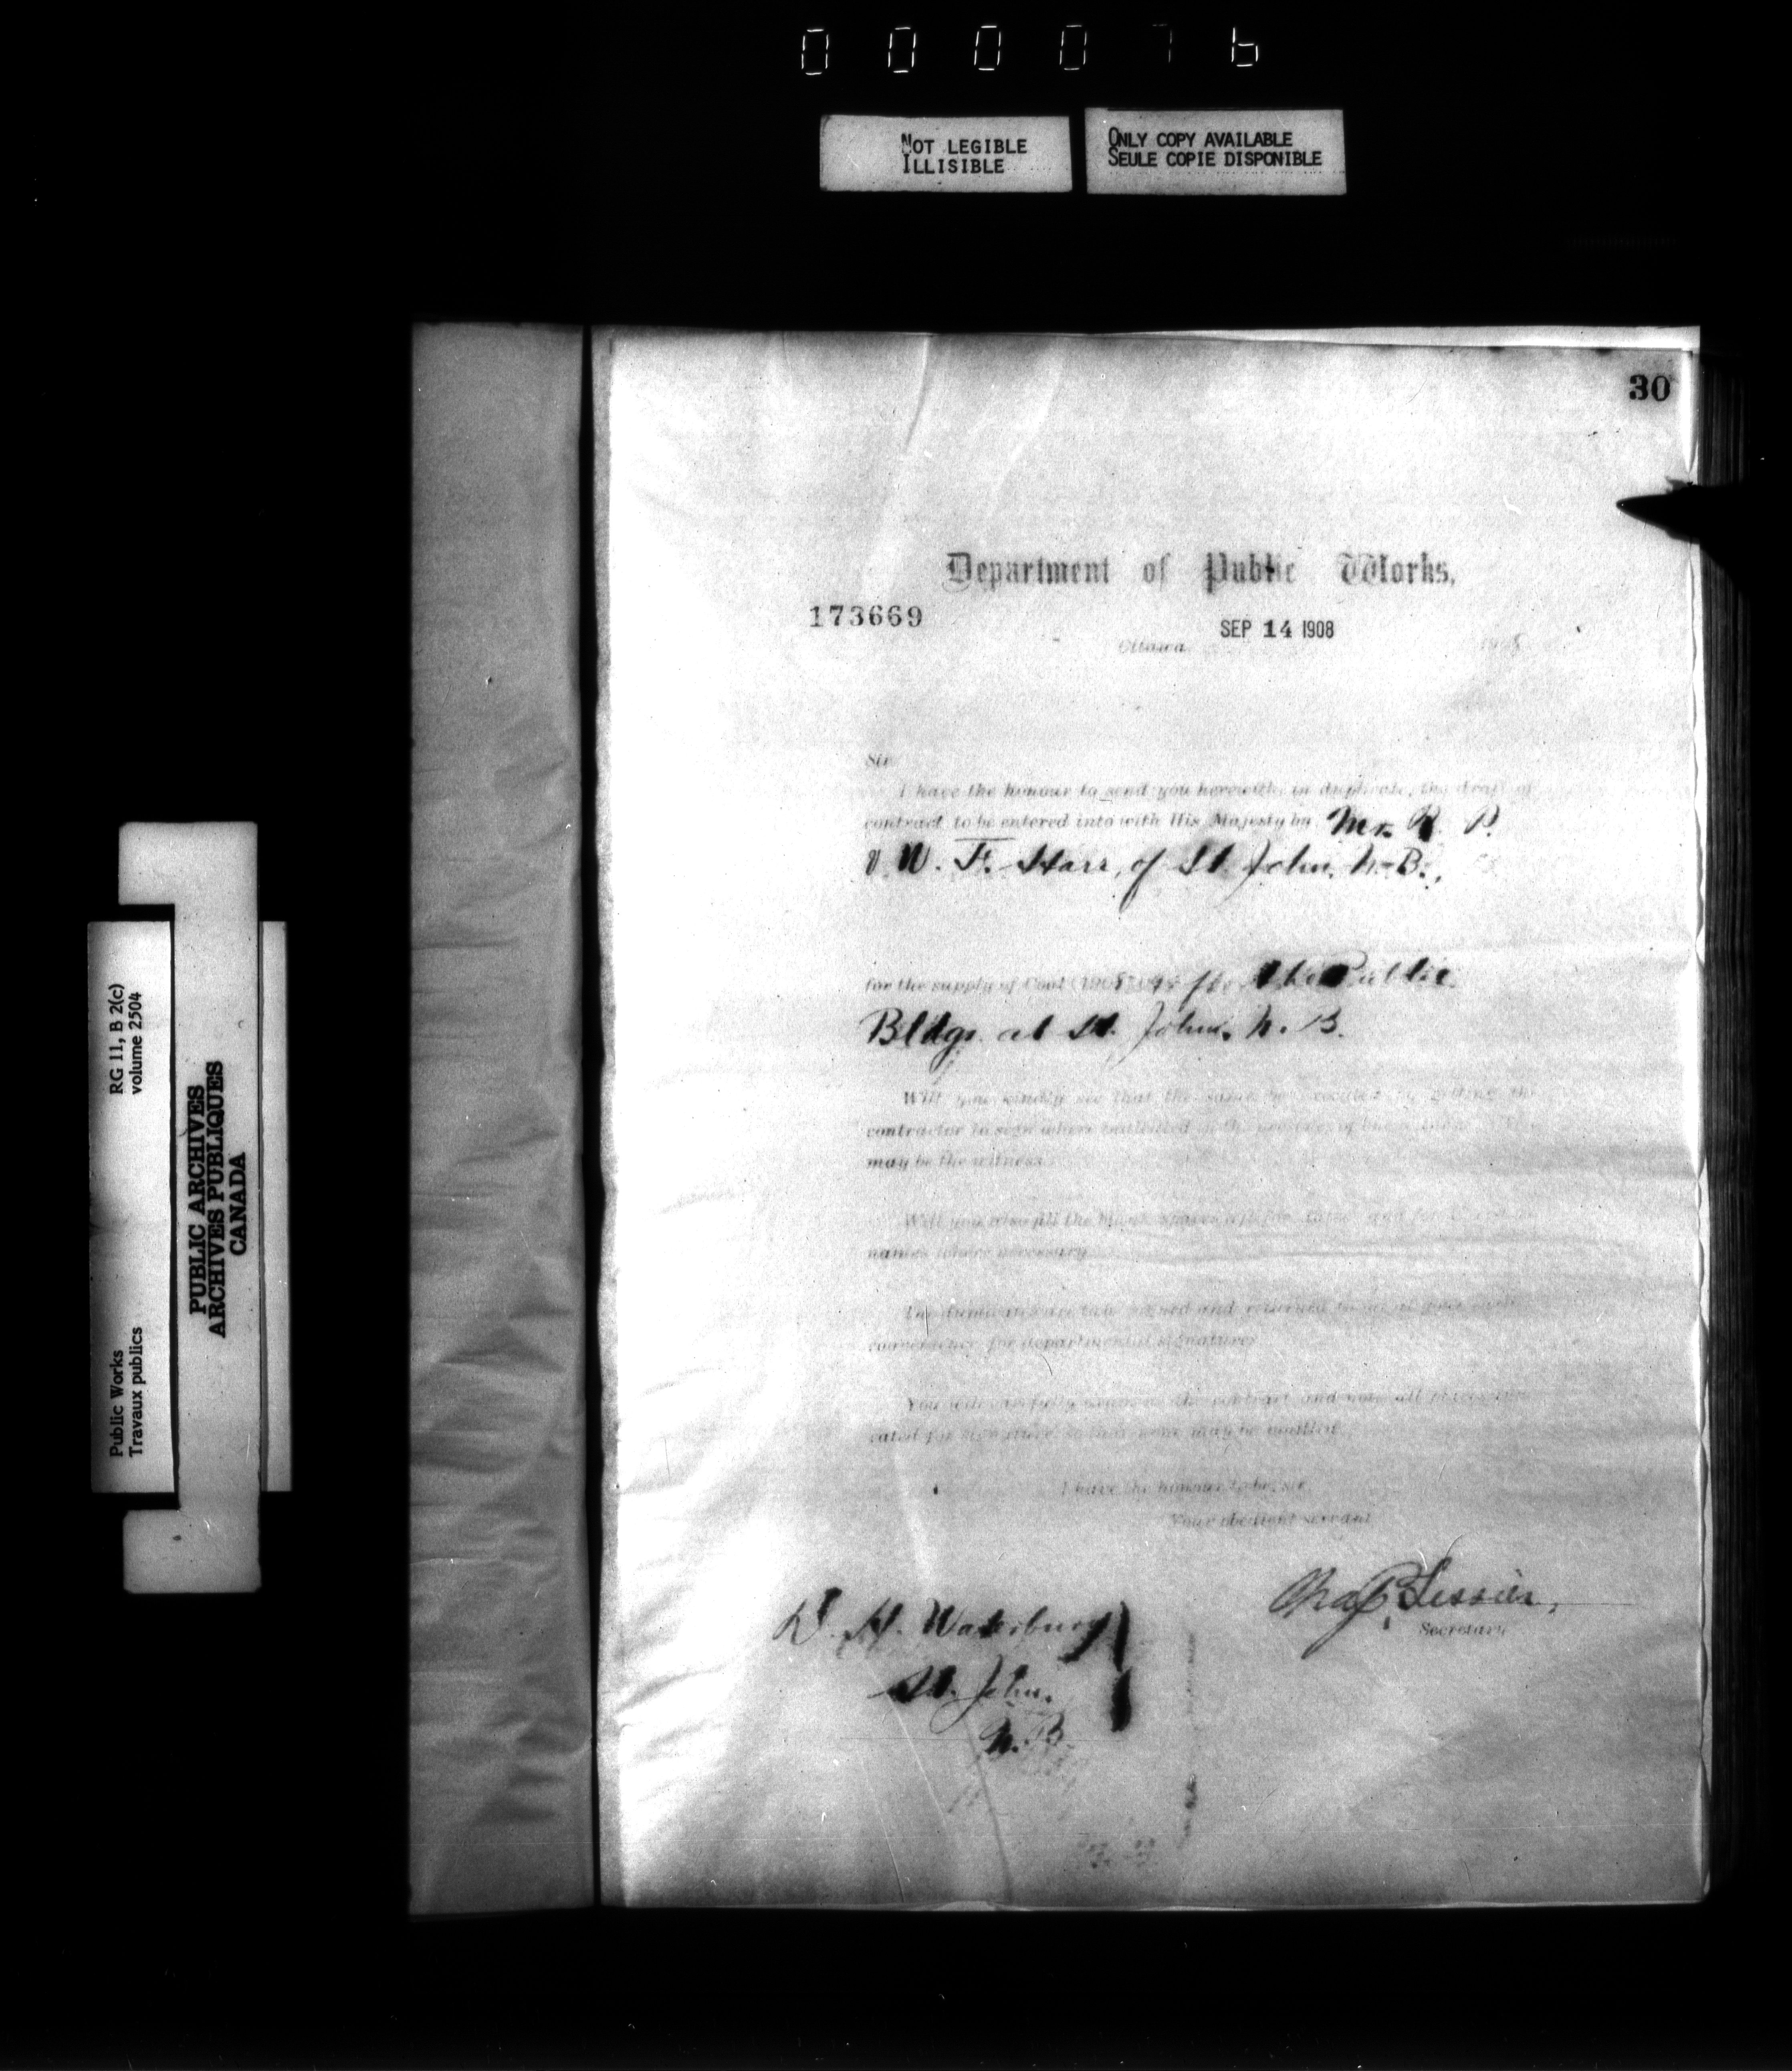 000076
NOT LEGIBLE
ILLISIBLE
ONLY COPY AVAILABLE
SEULE COPIE DISPONIBLE
30
Department of Public Works,
173669
SEP 14 1908
Ottawa 1908
Sir
I have the honour to send you herewith, in duplicate, the draft of
contract to be entered into with His Majesty by Mr. R. P.
& W. F. Starr, of St. John, N.B.,
for the supply of Coal for the Public
Bldgs. at St. John, N. B.
Will you kindly see that the same be executed by getting the
contractor to sign where indicated in the presence of
may be the witness
Will you also fill the blank spaces left for and for
names where necessary
The duplicates are to be signed and returned to me at your
convenience for departmental signatures
You will carefully examine the contract and note all places
cated for signature so that none may be omitted
I have the honour to be, sir
Your obedient servant
Chas P. Lessier,
Secretary
D. H. Waterbury
St. John,
N.B.
RG 11, B 2(c)
volume 2504
Public Works
Travaux publics
PUBLIC ARCHIVES
ARCHIVES PUBLIQUES
CANADA